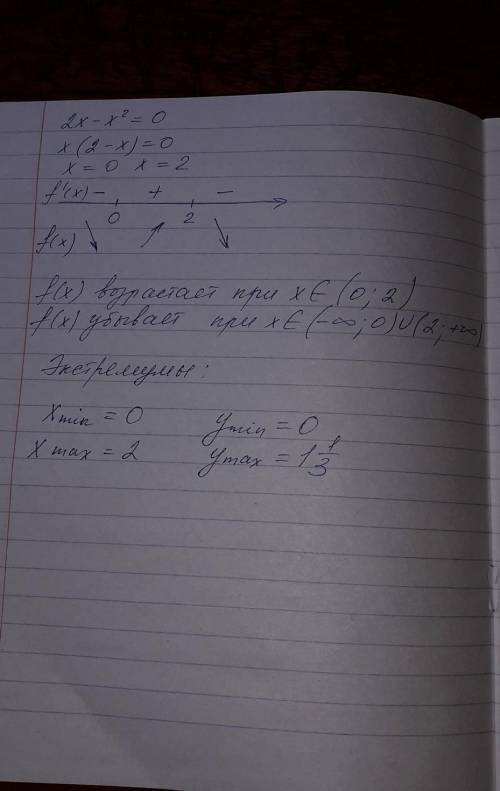 2x - x² = 0
x(2 - x) = 0
x = 0 x = 2
f'(x) - + -
0 2
f(x) ↘ ↗ ↘
f(x) возрастает при x ∈ (0; 2)
f(x) убывает при x ∈ (-∞; 0) ∪ (2; +∞)
Экстремумы:
x min = 0 y min = 0
x max = 2 y max = 1 1/3